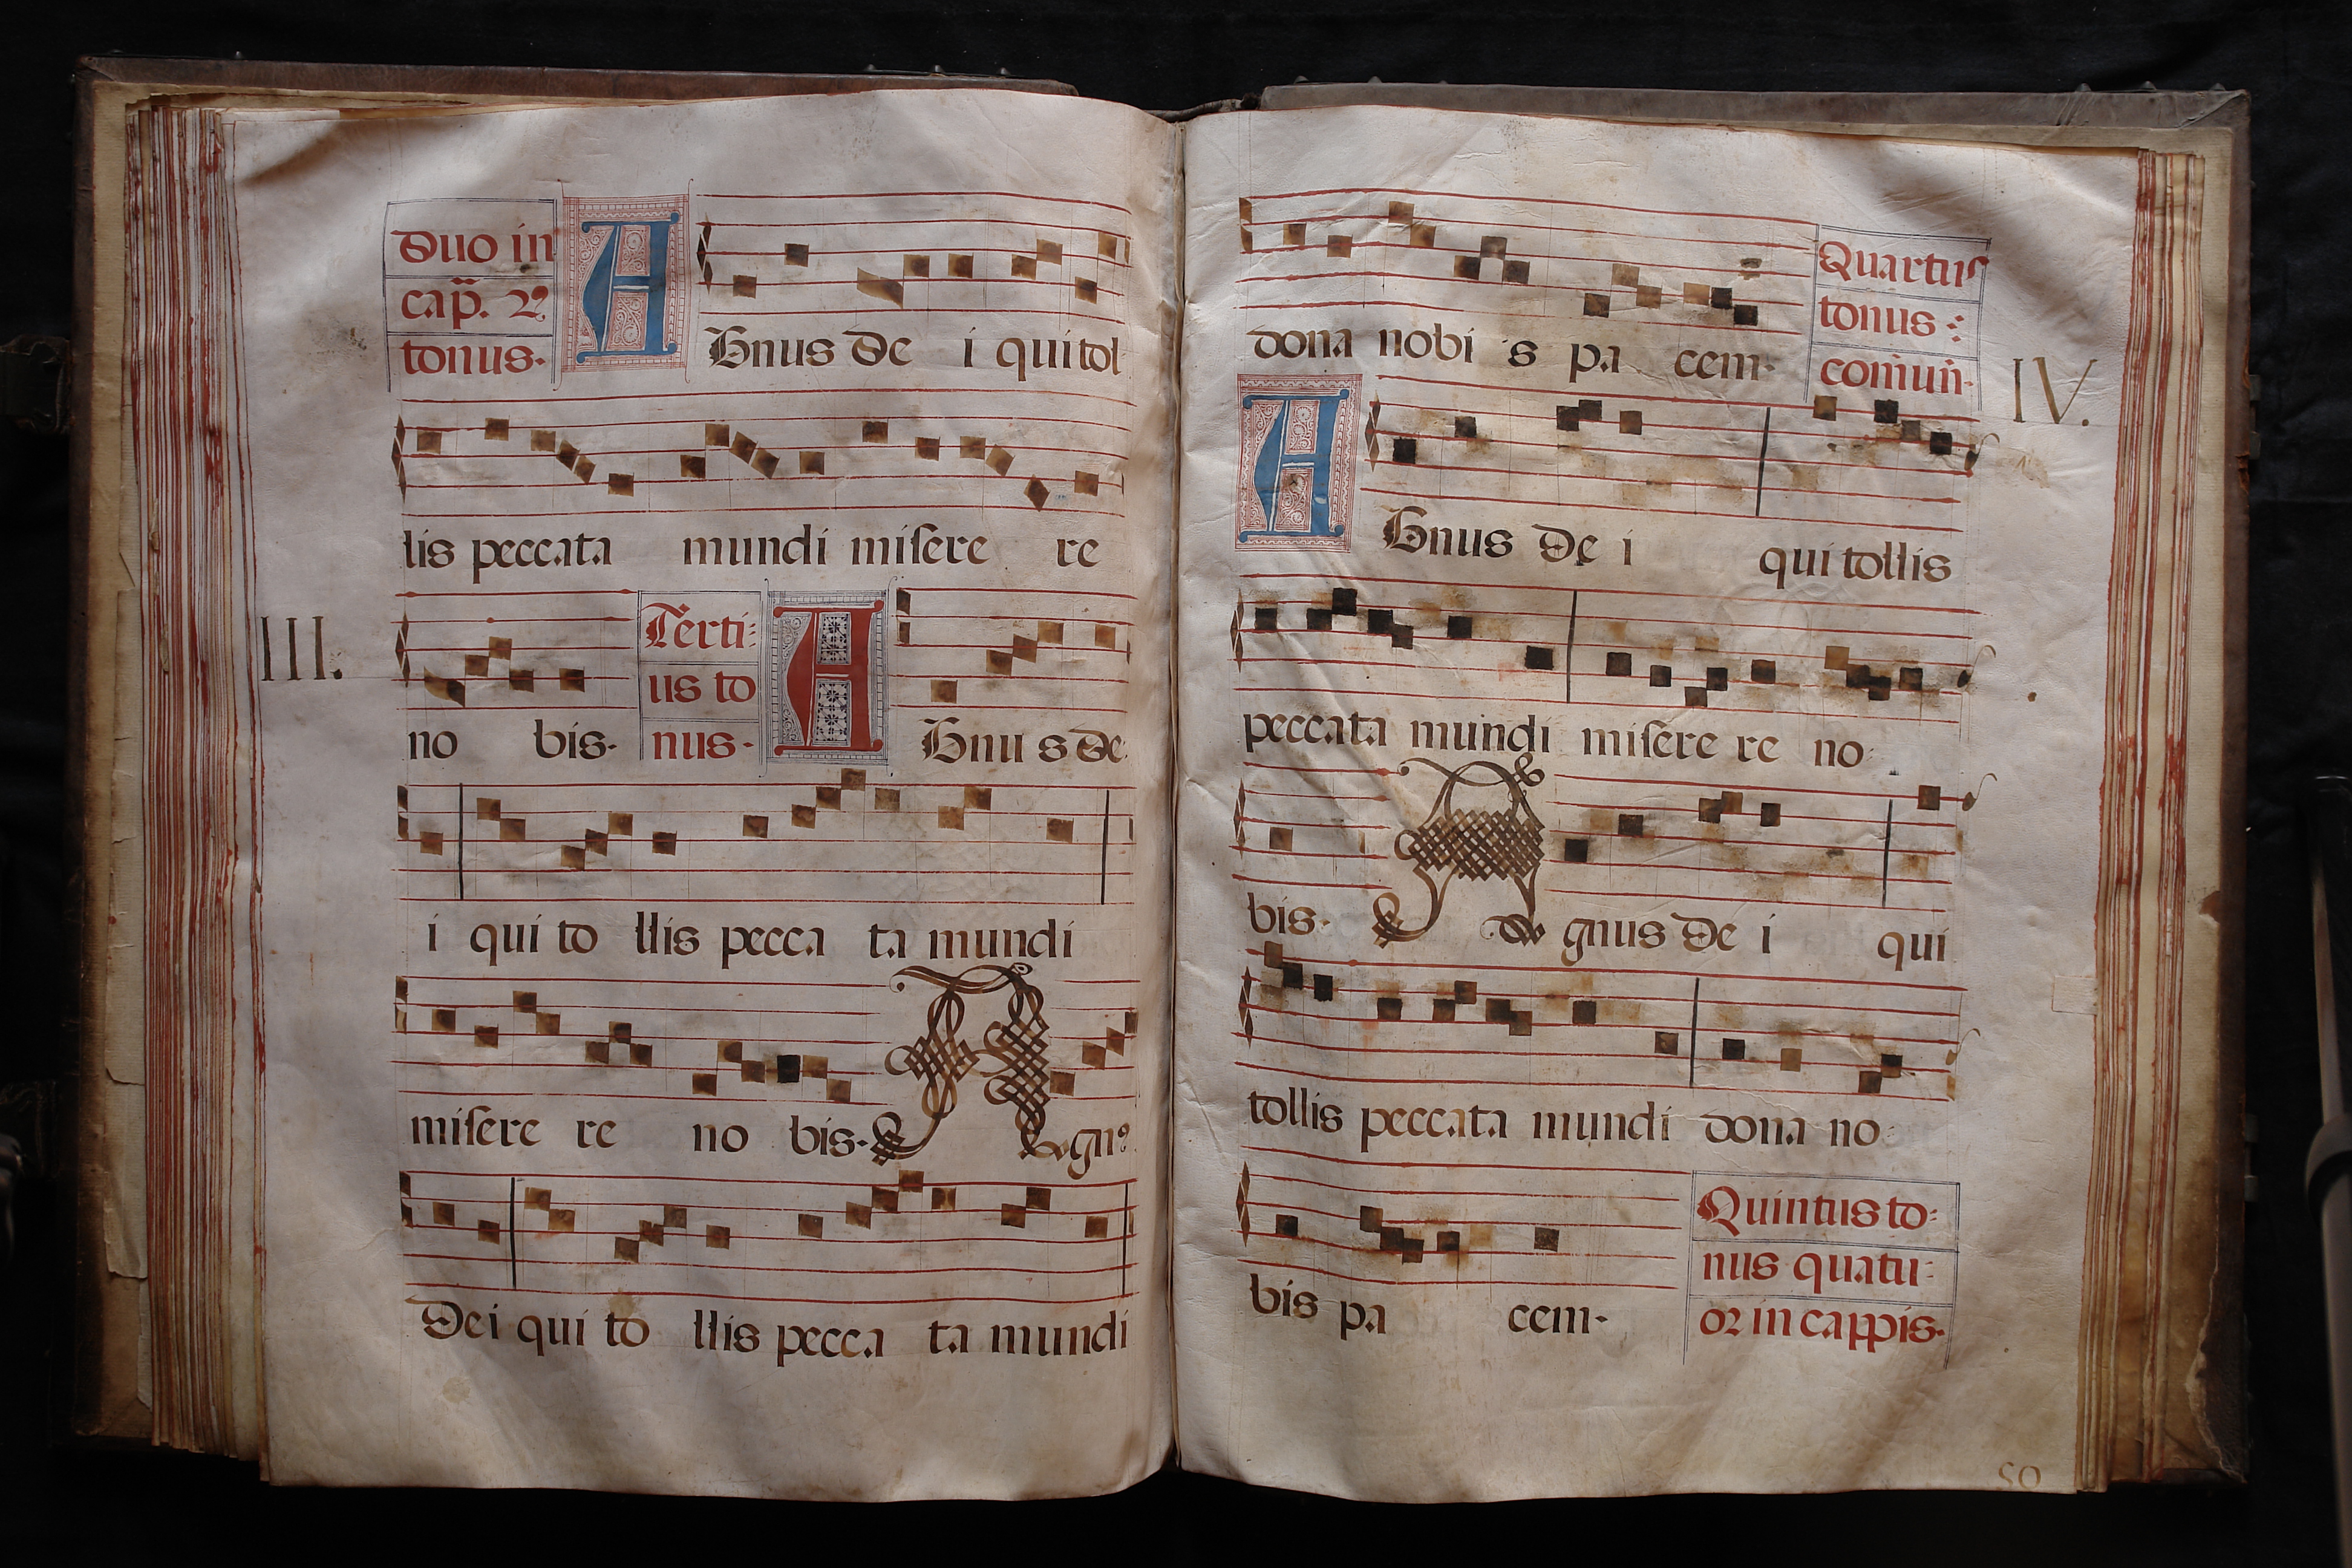 Duo in
cap̃. 2º
tonus.
Agnus De i qui tol
lis peccata mundi miſere re
III.
no bis.
Terti-
us to
nus.
Agnu s De
i qui to llis pecca ta mundi
miſere re no bis. Agnꝰ
Dei qui to llis pecca ta mundi
dona nobi s pa cem.
Quartus
tonus :
comuñ.
IV.
Agnus De i qui tollis
peccata mundi miſere re no
bis. Agnus De i qui
tollis peccata mundi dona no
bis pa cem.
Quintus to-
nus quatu-
or in cappis.
50